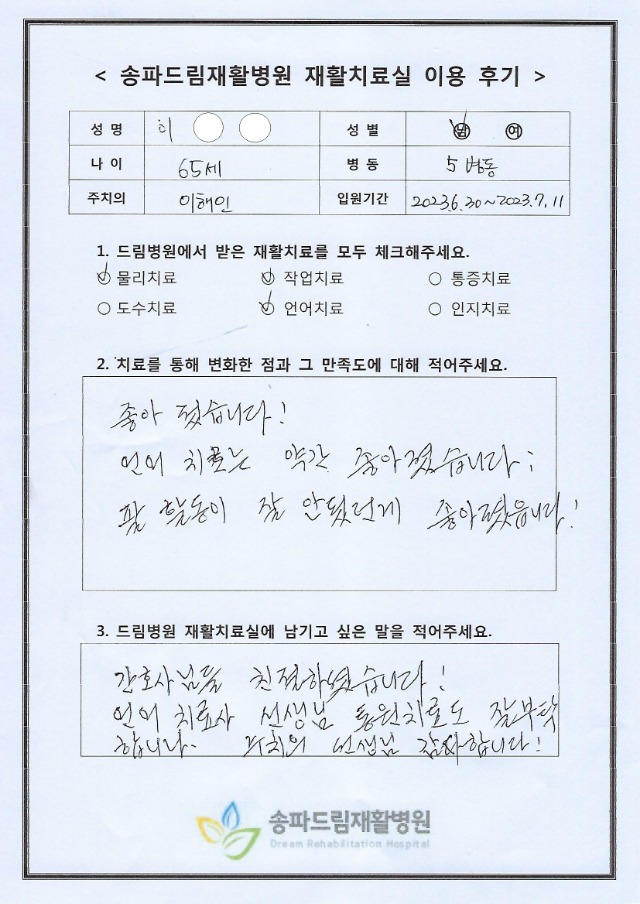 < 송파드림재활병원 재활치료실 이용 후기 >
성 명 이 성 별 남 여
나 이 65세 병 동 5 병동
주치의 이해인 입원기간 2023.6.30~2023.7.11
1. 드림병원에서 받은 재활치료를 모두 체크해주세요.
물리치료 작업치료 통증치료
도수치료 언어치료 인지치료
2. 치료를 통해 변화한 점과 그 만족도에 대해 적어주세요.
좋아 졌습니다!
언어 치료는 약간 좋아졌습니다;
팔 활동이 잘 안됬던게 좋아졌읍니다!
3. 드림병원 재활치료실에 남기고 싶은 말을 적어주세요.
간호사님들 친절하였습니다!
언어 치료사 선생님 통원치료도 잘부탁
합니다. 주치의 선생님 감사합니다!
송파드림재활병원
Dream Rehabilitation Hospital